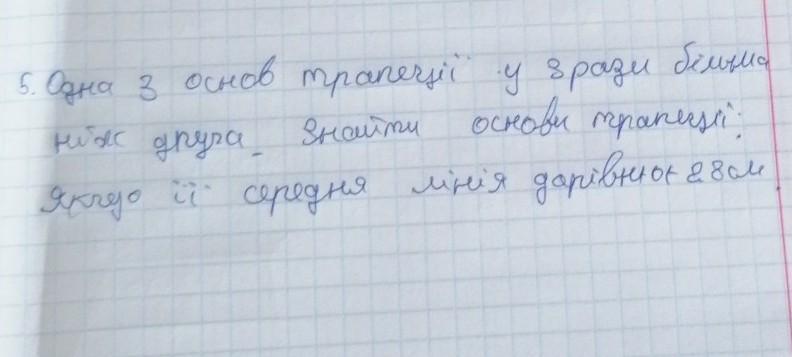 5. Одна з основ трапеції у 3 рази більша
ніж друга. Знайти основи трапеції,
якщо її середня лінія дорівнює 28см